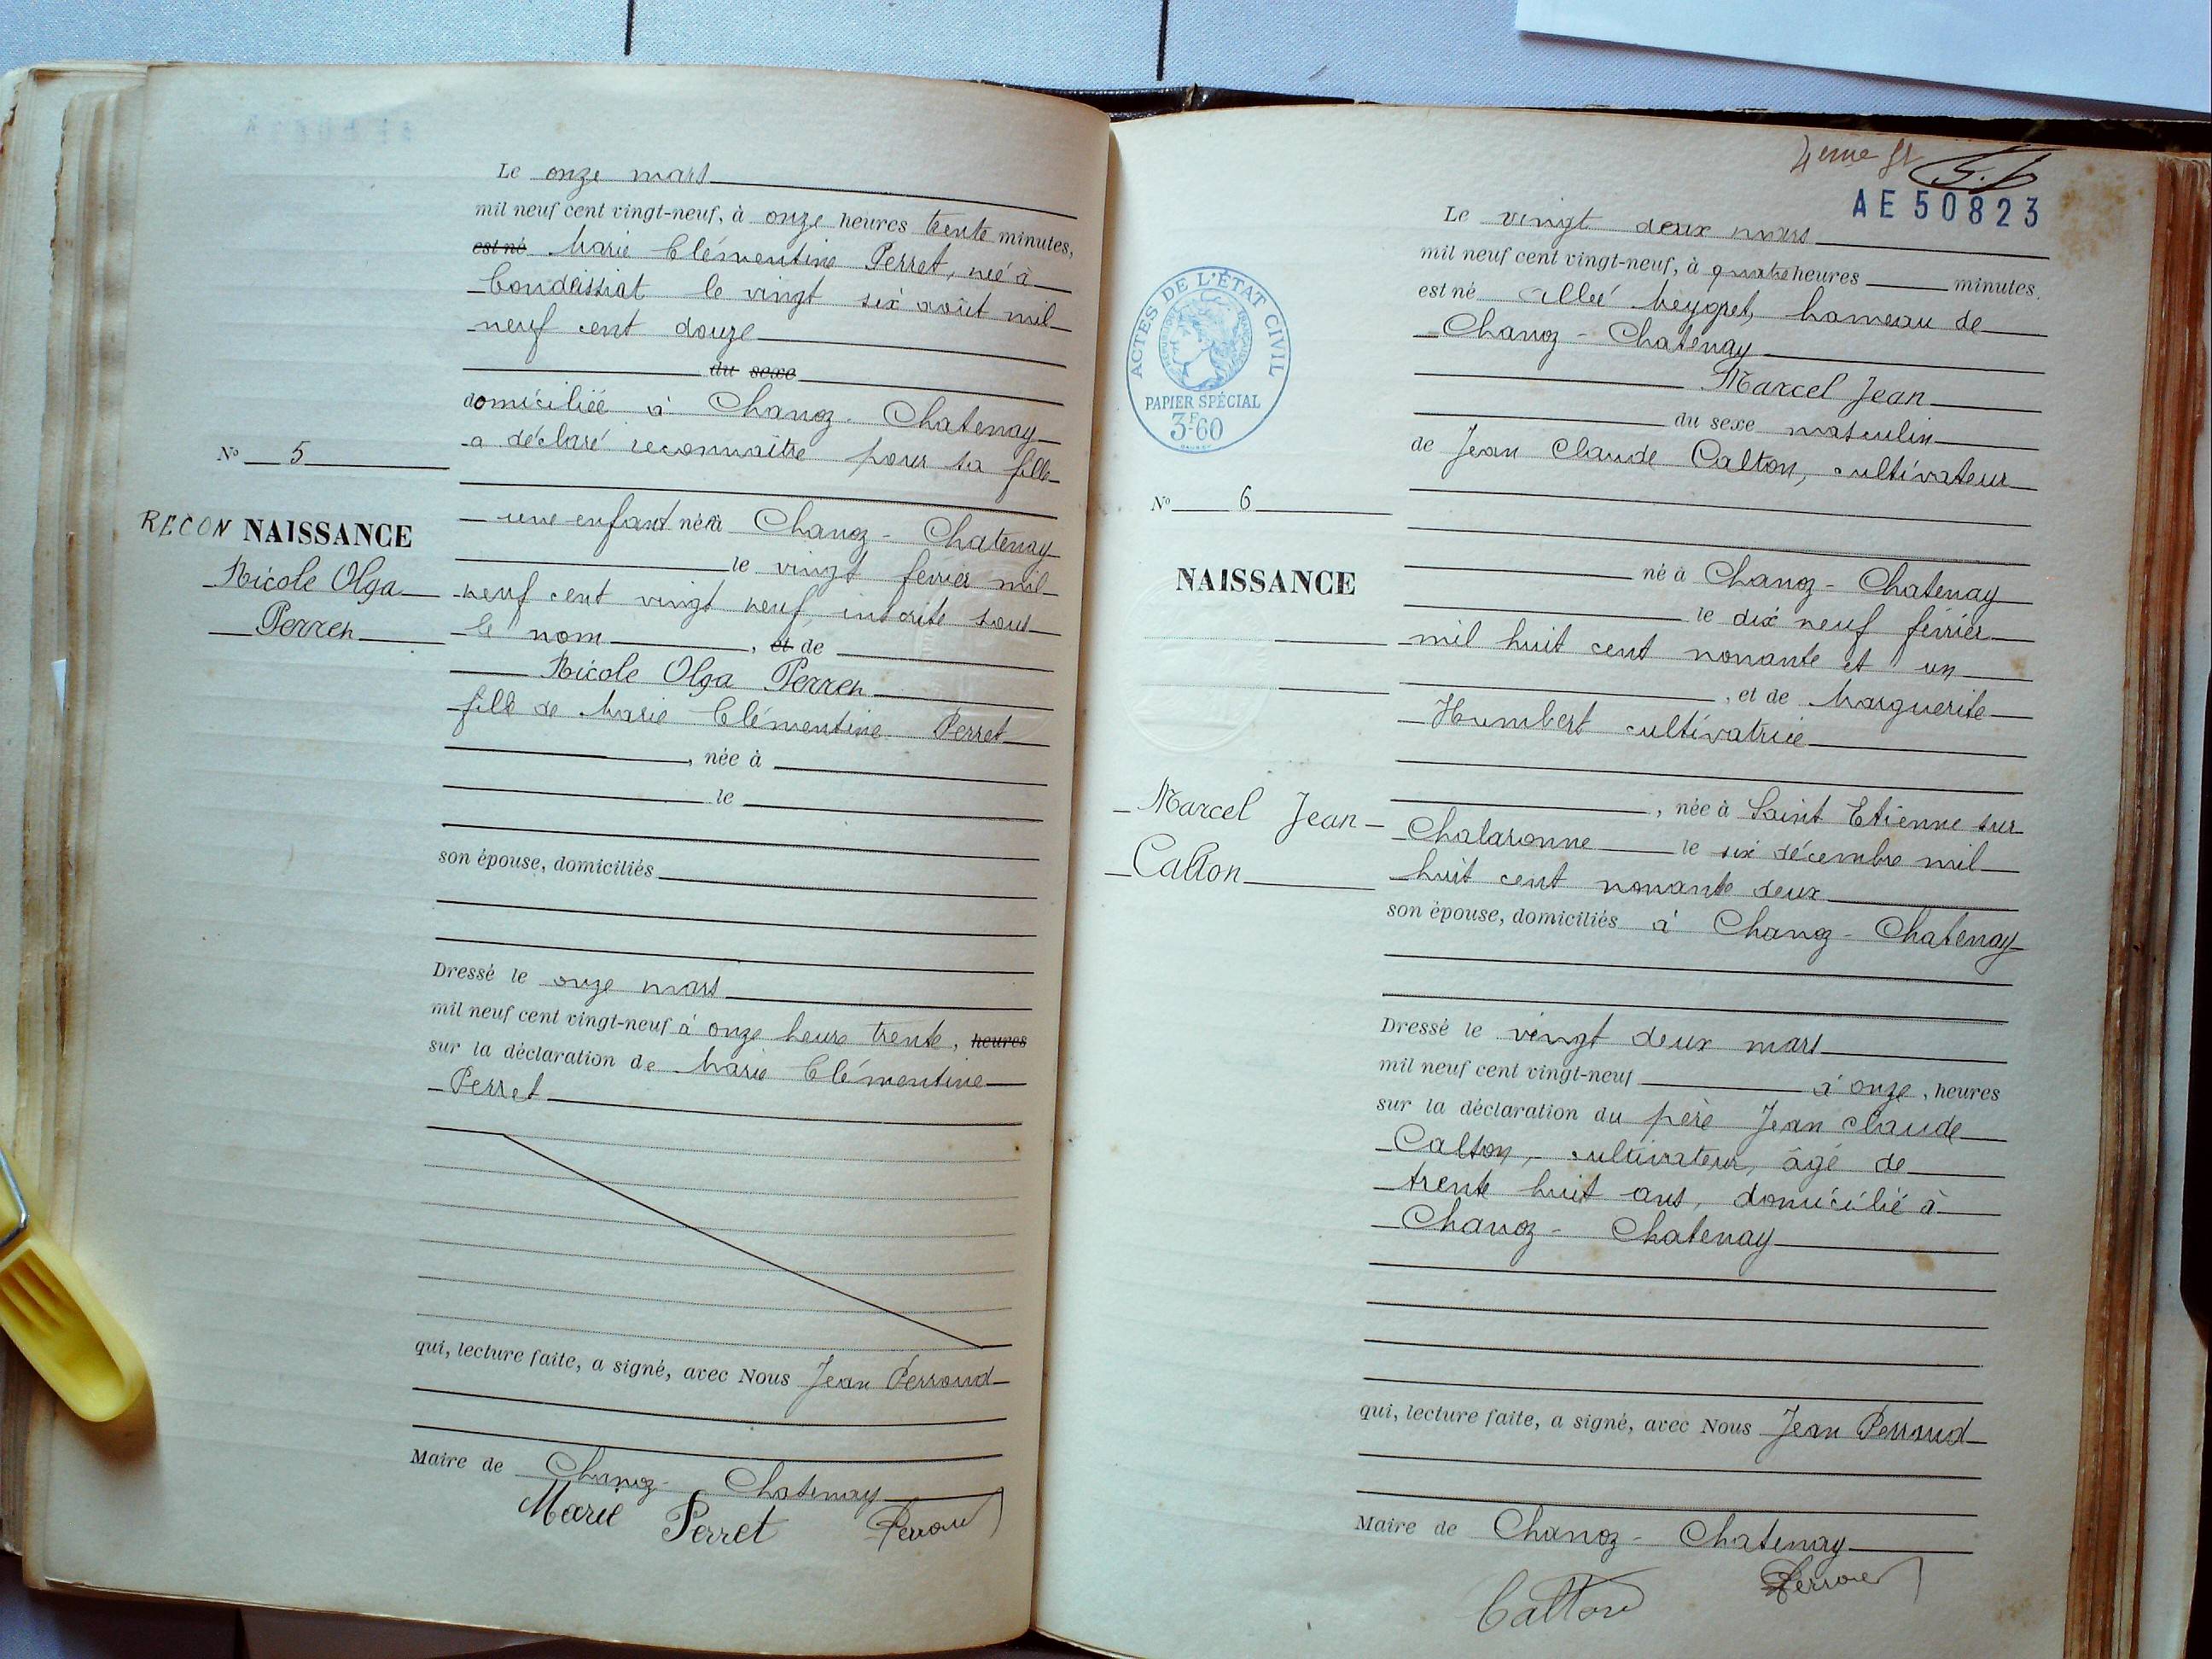 Le onze mars
mil neuf cent vingt-neuf, à onze heures trente minutes,
est né Marie Clémentine Perret, née à
Condeissiat le vingt six août mil
neuf cent douze
du sexe
domiciliée à Chanoz-Chatenay
a déclaré reconnaître pour sa fille
une enfant née à Chanoz-Chatenay
le vingt février mil
neuf cent vingt neuf, inscrite sous
le nom, et de
Nicole Olga Perren
fille de Marie Clémentine Perret
, née à
le
son épouse, domiciliés
Dressé le onze mars
mil neuf cent vingt-neuf à onze heure trente, heures
sur la déclaration de Marie Clémentine
Perret
qui, lecture faite, a signé, avec Nous Jean Perroud
Maire de Chanoz-Chatenay
Marie Perret Perroud
N° 5
RECONNAISSANCE
Nicole Olga
Perren
4eme
AE 50823
Le vingt deux mars
mil neuf cent vingt-neuf, à quatre heures minutes.
est né hameau de
Chanoz-Chatenay
Marcel Jean
du sexe masculin
de Jean Claude Calton, cultivateur
né à Chanoz-Chatenay
le dix neuf février
mil huit cent nonante et un
, et de Marguerite
Humbert cultivatrice
, née à Saint Etienne sur
Chalaronne le six décembre mil
huit cent nonante deux
son épouse, domiciliés à Chanoz-Chatenay
Dressé le vingt deux mars
mil neuf cent vingt-neuf à onze, heures
sur la déclaration du père Jean Claude
Calton, cultivateur, âgé de
trente huit ans, domicilié à
Chanoz-Chatenay
qui, lecture faite, a signé, avec Nous Jean Perroud
Maire de Chanoz-Chatenay
Calton Perroud
ACTES DE L'ÉTAT CIVIL
PAPIER SPÉCIAL
3F60
N° 6
NAISSANCE
Marcel Jean
Calton